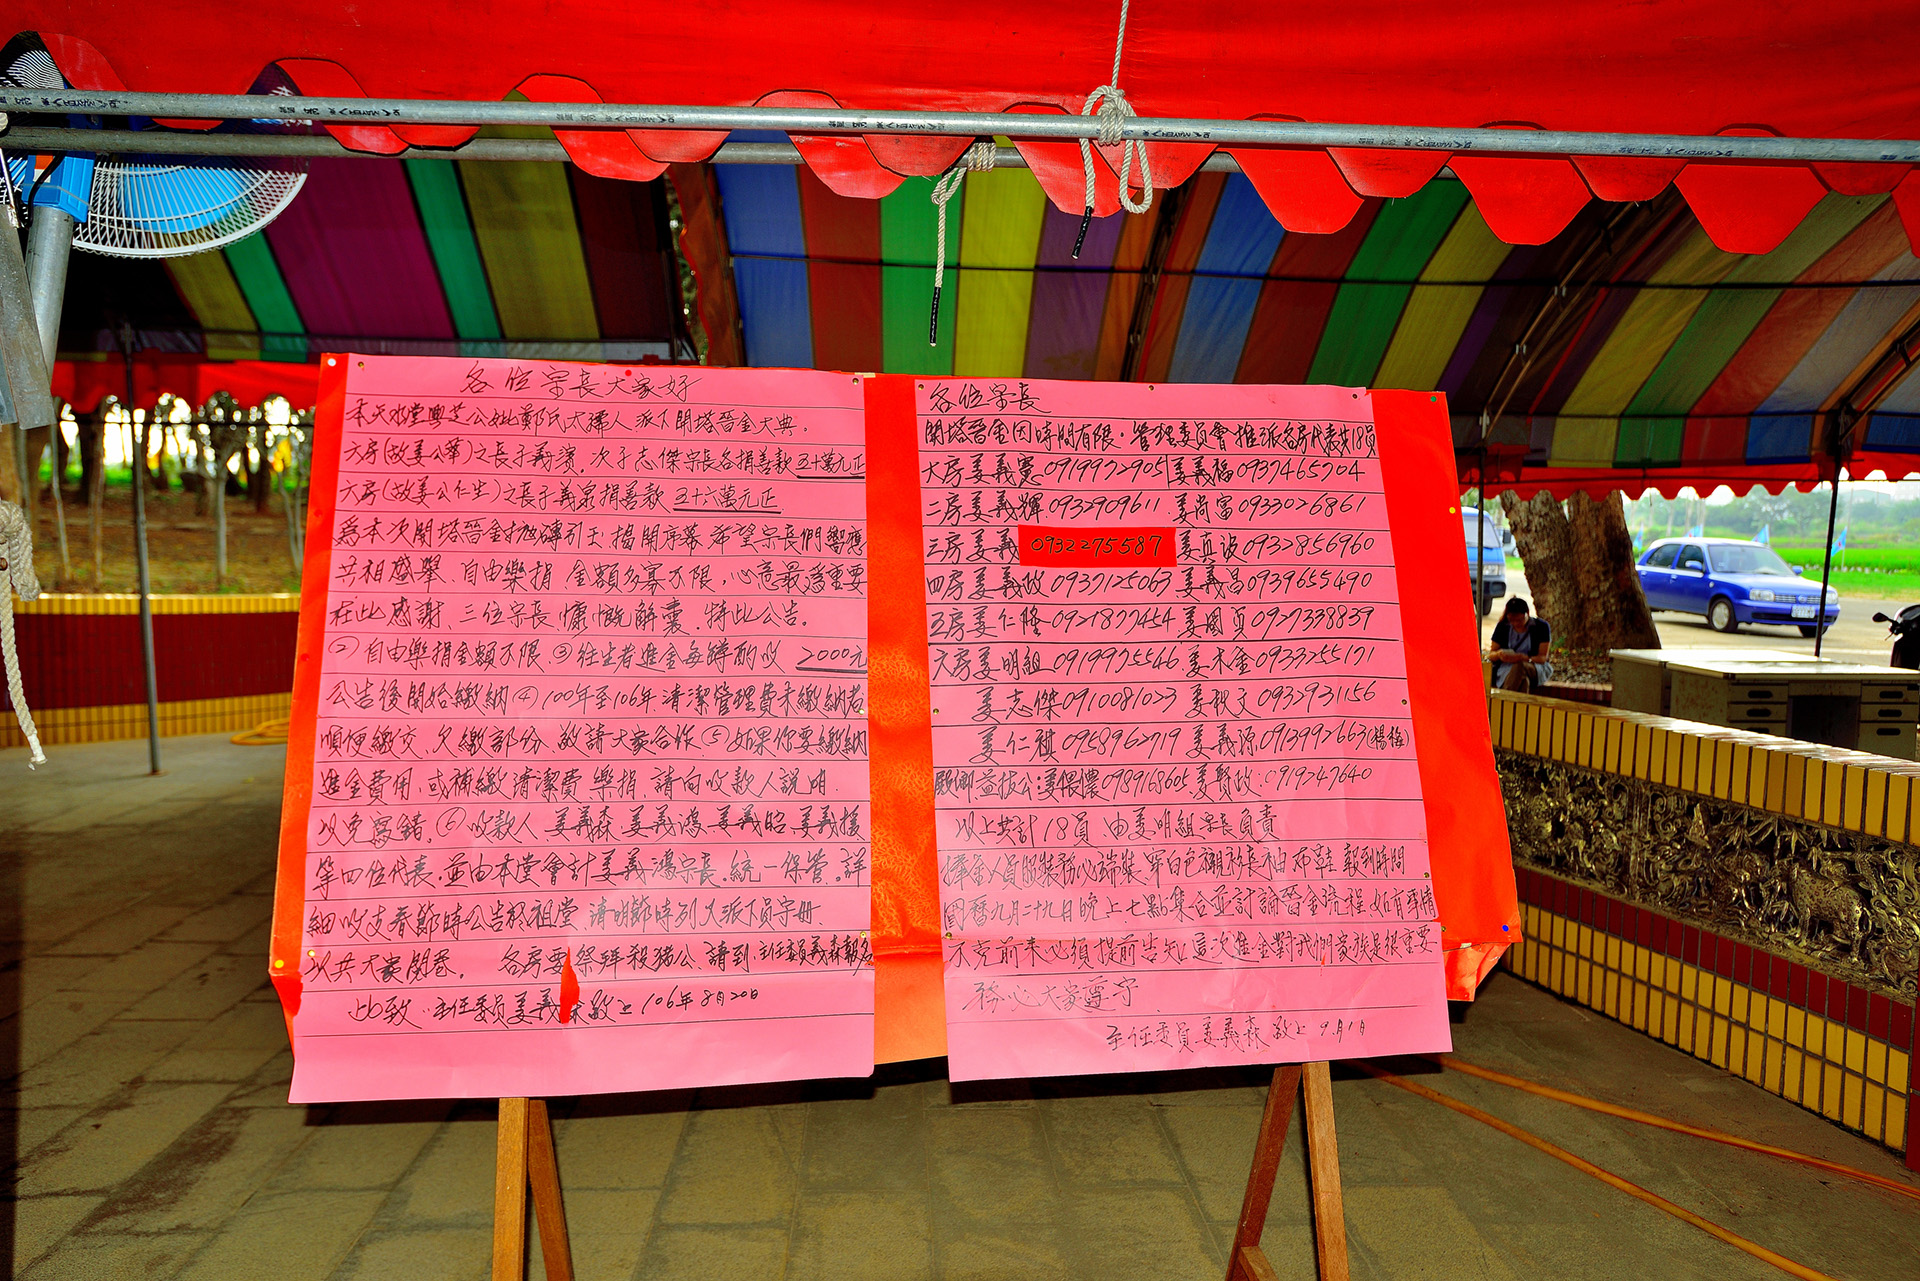 各位宗長大家好
本天水堂興芝公妣鄭氏太孺人派下開塔晉金大典.
六房(故姜公華)之長子義濱.次子志傑宗長各捐善款五十萬元正
六房(故姜公仁生)之長子義泉捐善款 五十六萬元正
為本次開塔晉金拋磚引玉.揭開序幕.希望宗長們響應
共相盛舉.自由樂捐.金額多寡不限,心意最為重要
在此感謝.三位宗長慷慨解囊.特此公告。
②自由樂捐金額不限.③往生者進金每罈酌收 2000元
公告後開始繳納④100年至106年清潔管理費未繳納者
順便繳交.欠繳部份.敬請大家合作⑤如果你要繳納
進金費用.或補繳清潔費樂捐.請向收款人說明.
以免寫錯.⑥收款人.姜義森.姜義鴻.姜義昭.姜義
等四位代表.並由本堂會計姜義鴻宗長.統一保管.詳
細收支春節時公告於祖堂.清明節時列入派下員守冊.
以供大家閱卷。 各房要祭拜殺豬公.請到.主任委員義森報名
此致.主任委員姜義森敬上106年8月20日
各位宗長
開塔晉金因時間有限.管理委員會推派各房代表共18員
大房姜義憲0919972905姜義福0937465704
二房姜義輝.0932909611.姜尚富0933026861
三房姜義 0932275587 姜真波0932856960
四房姜義政0937125063姜義昌0939655490
五房姜仁隆0921877454姜國貢0927338839
六房姜明組0919975546.姜木金0933255171
姜志傑0910081023姜秋文0932931156
姜仁祺0958962719姜義源0913992663(楊梅)
殿卿.益拔公:姜偎儂0989168605.姜賢政:0919247640
以上共計18員.由姜明組宗長負責
擇金人員服裝務必端裝.穿白色襯衫長袖.布鞋.報到時間
國曆九月二十九日晚上七點集合並討論晉金流程.如有事情
不克前來必須提前告知.這次進金對我們家族是很重要
務必大家遵守
主任委員姜義森敬上9月1日